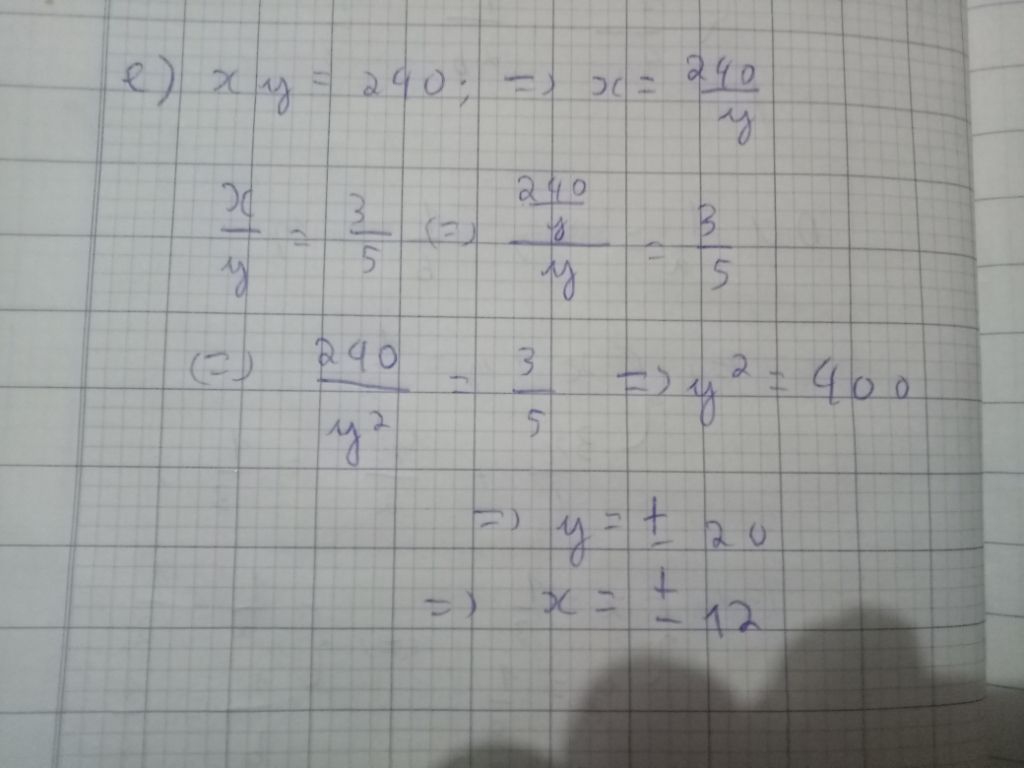 e) x y = 240; => x = 240/y
x/y = 3/5 (=) (240/y)/y = 3/5
(=) 240/y² = 3/5 => y² = 400
=> y = ± 20
=> x = ± 12